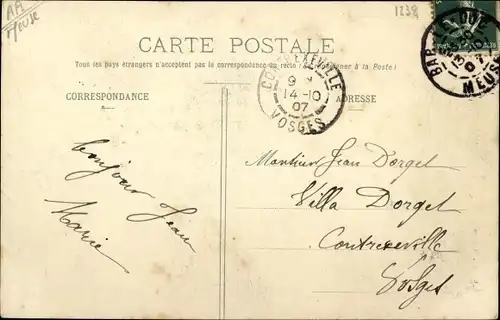 AA
Meuse
1238
CARTE POSTALE
Tous les pays étrangers n'acceptent pas la correspondance au recto (Se renseigner à la Poste)
CORRESPONDANCE
ADRESSE
CONTREXEVILLE
14-10
07
VOSGES
BAR-LE-DUC
MEUSE
bonjour Jean
Marie
Monsieur Jean Dorget
Villa Dorget
Contrexeville
Vosges